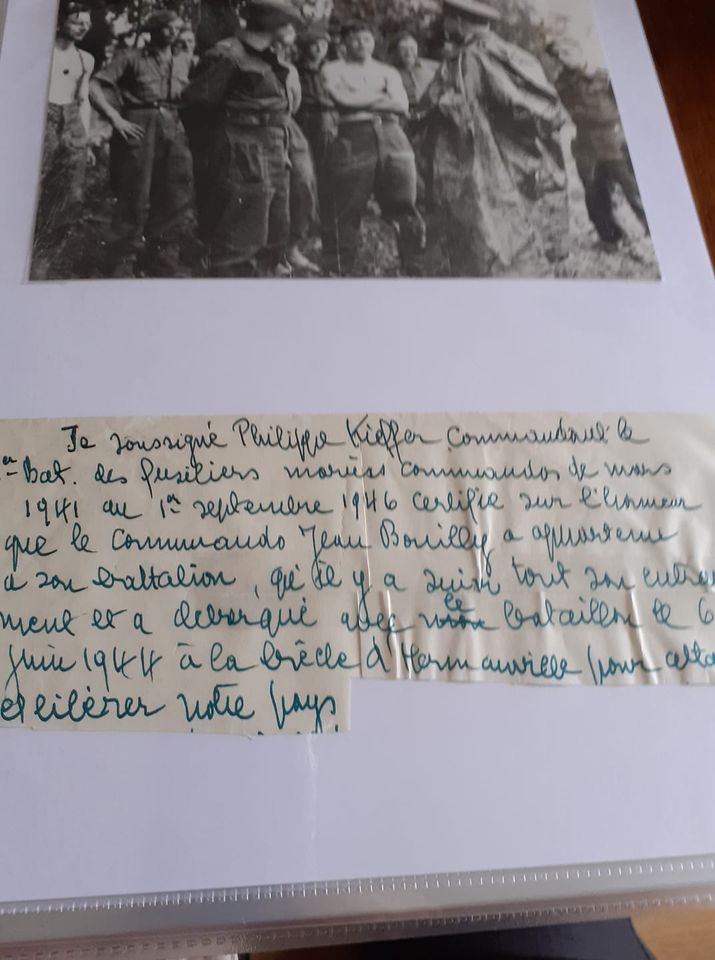 Je soussigné Philippe Kieffer Commandant le
1er Bat. des fusiliers marins commandos de mars
1941 au 1er septembre 1946 certifie sur l'honneur
que le Commando Jean Bouilly a appartenu
a son battalion, qu'il y a suivi tout son entrai
ment et a debarqué avec le bataillon le 6
Juin 1944 à la brèche d'Hermanville pour
et libérer notre pays